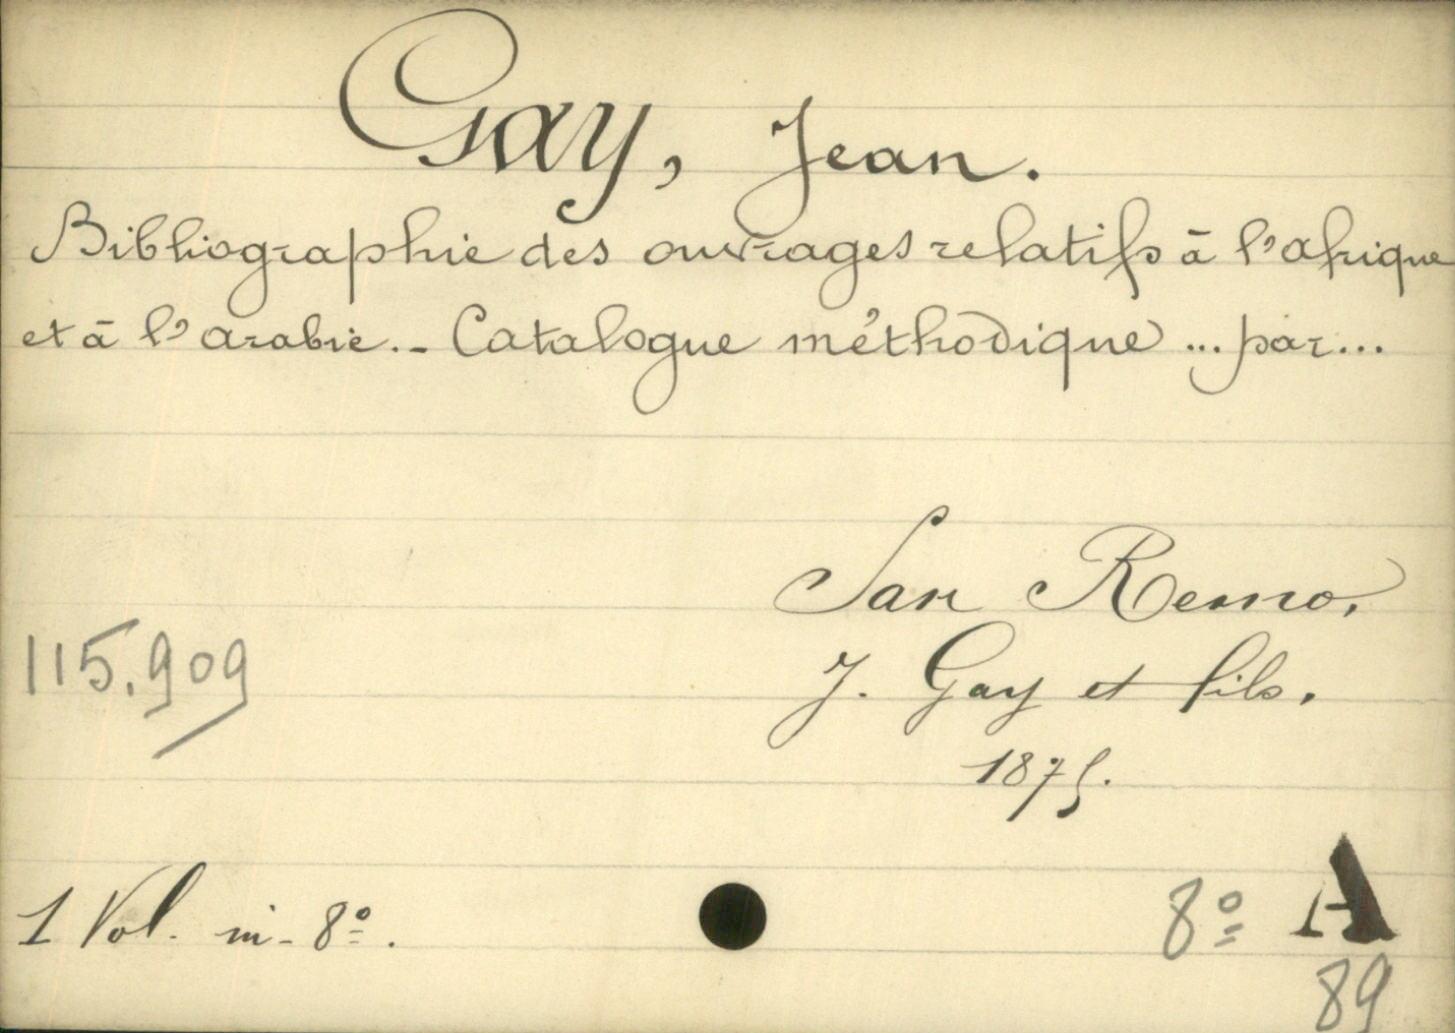 Gay, Jean.
Bibliographie des ouvrages relatifs à l'afrique
et à l'arabie. - Catalogue méthodique ... par ...
San Remo.
115.909
J. Gay et fils.
1875.
1 Vol. in-8º.
8º A
89